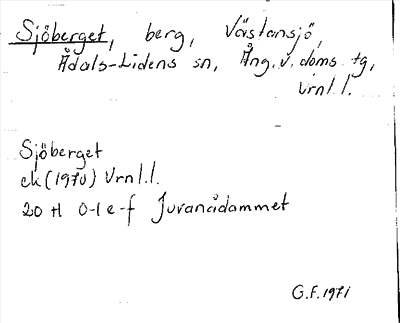 Sjöberget, berg, Västansjö,
Ådals-Lidens sn, Ång.v.doms.tg,
Vrnl.l.
Sjöberget
ek (1970) Vrnl.l.
20 H 0-1 e-f Juranådammet
G.F. 1971